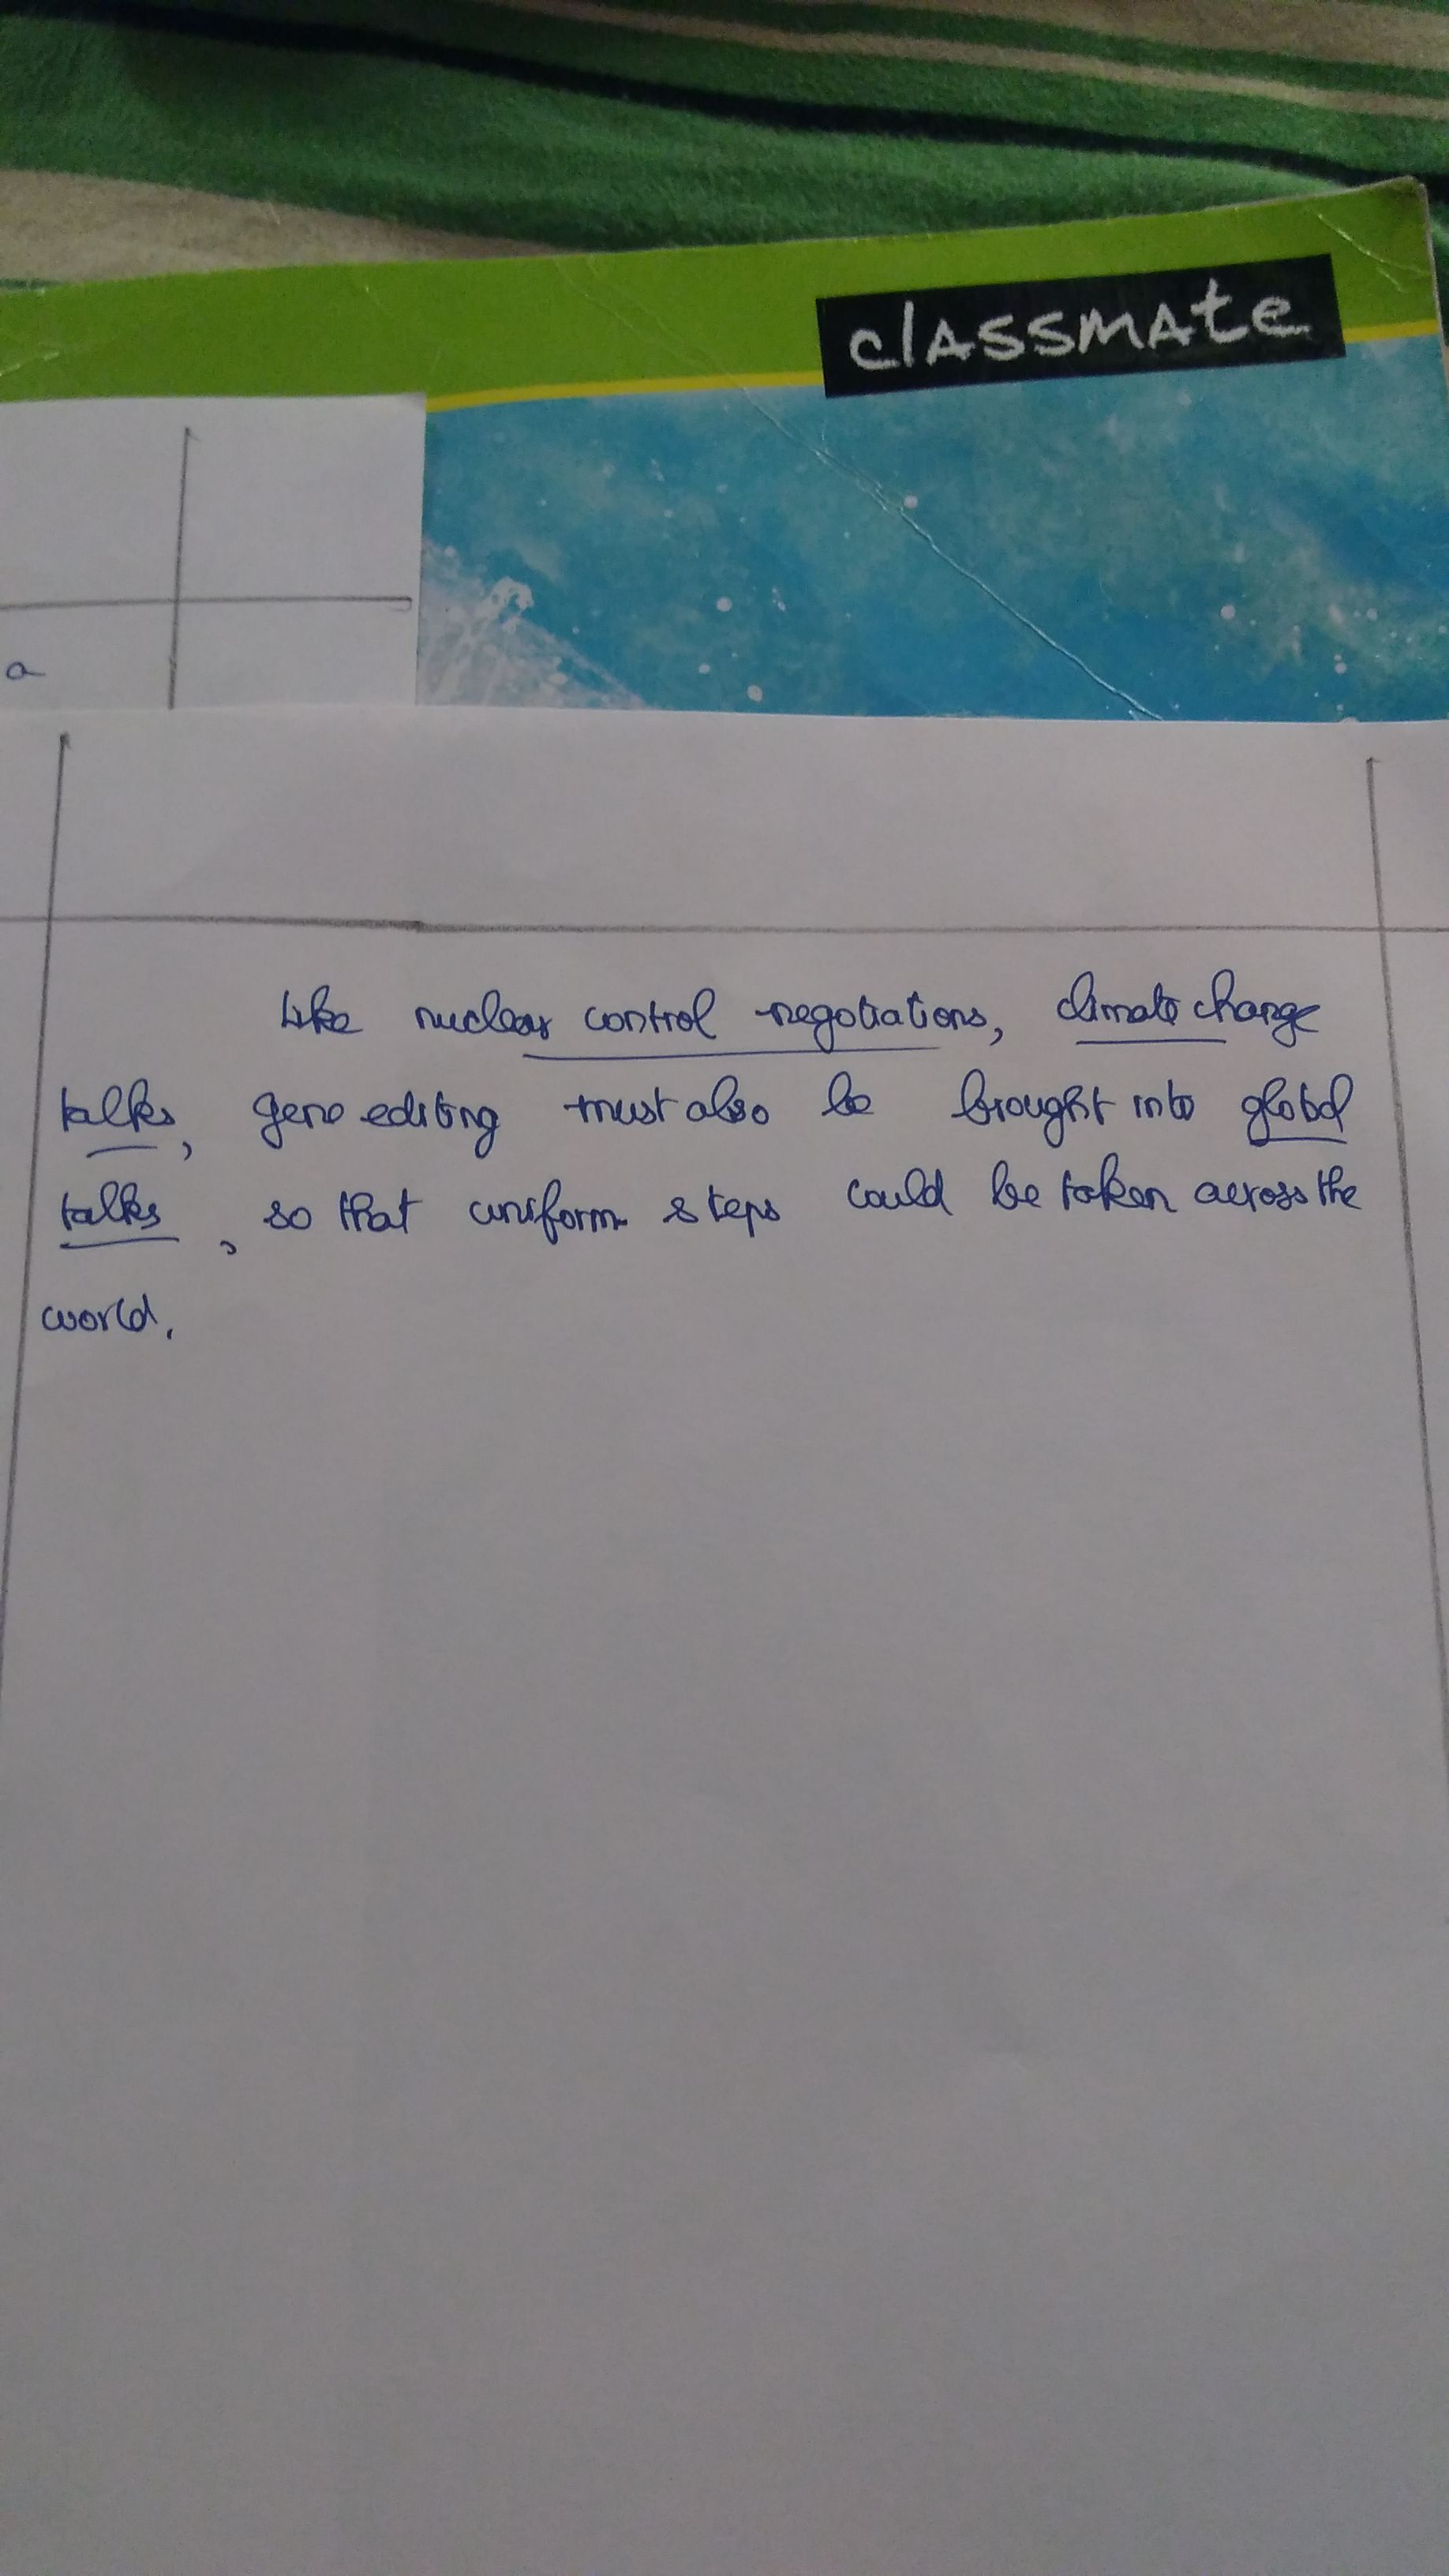 classmate
a
Like nuclear control negotiations, climate change
talks, gene editing must also be brought into global
talks, so that uniform steps could be taken across the
world.